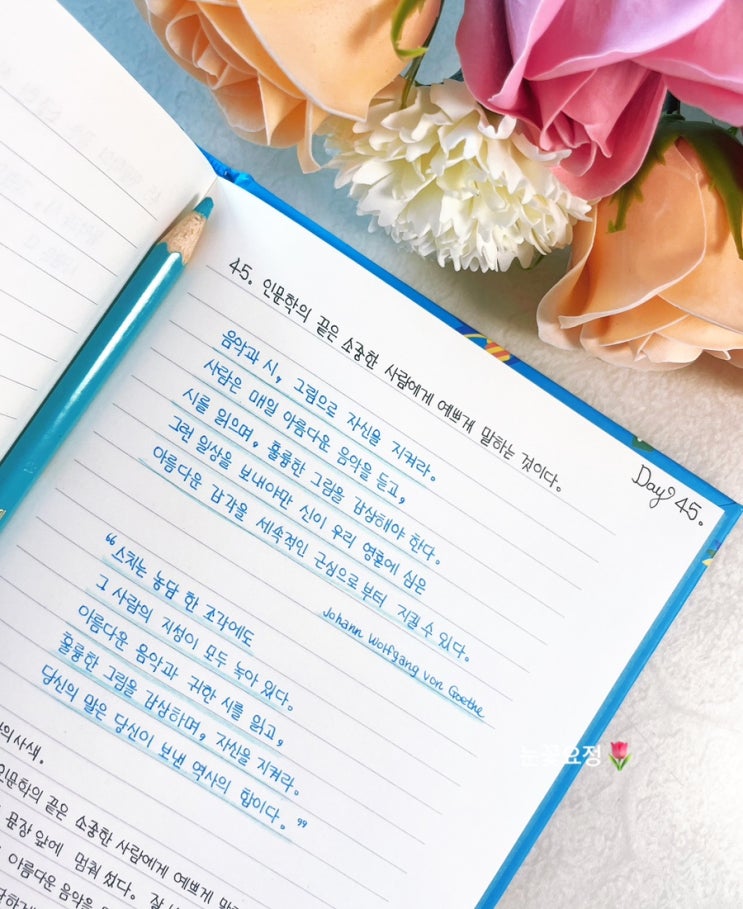 45. 인문학의 끝은 소중한 사람에게 예쁘게 말하는 것이다.
Day 45.
음악과 시, 그림으로 자신을 지켜라.
사람은 매일 아름다운 음악을 듣고,
시를 읽으며, 훌륭한 그림을 감상해야 한다.
그런 일상을 보내야만 신이 우리 영혼에 심은
아름다운 감각을 세속적인 근심으로부터 지킬 수 있다.
Johann Wolfgang von Goethe
“스치는 농담 한 조각에도
그 사람의 지성이 모두 녹아 있다.
아름다운 음악과 귀한 시를 읽고,
훌륭한 그림을 감상하며, 자신을 지켜라.
당신의 말은 당신이 보낸 역사의 합이다.”
사색.
인문학의 끝은 소중한 사람에게 예쁘게
문장 앞에 멈춰 섰다. 잘
아름다운 음악을
눈꽃요정